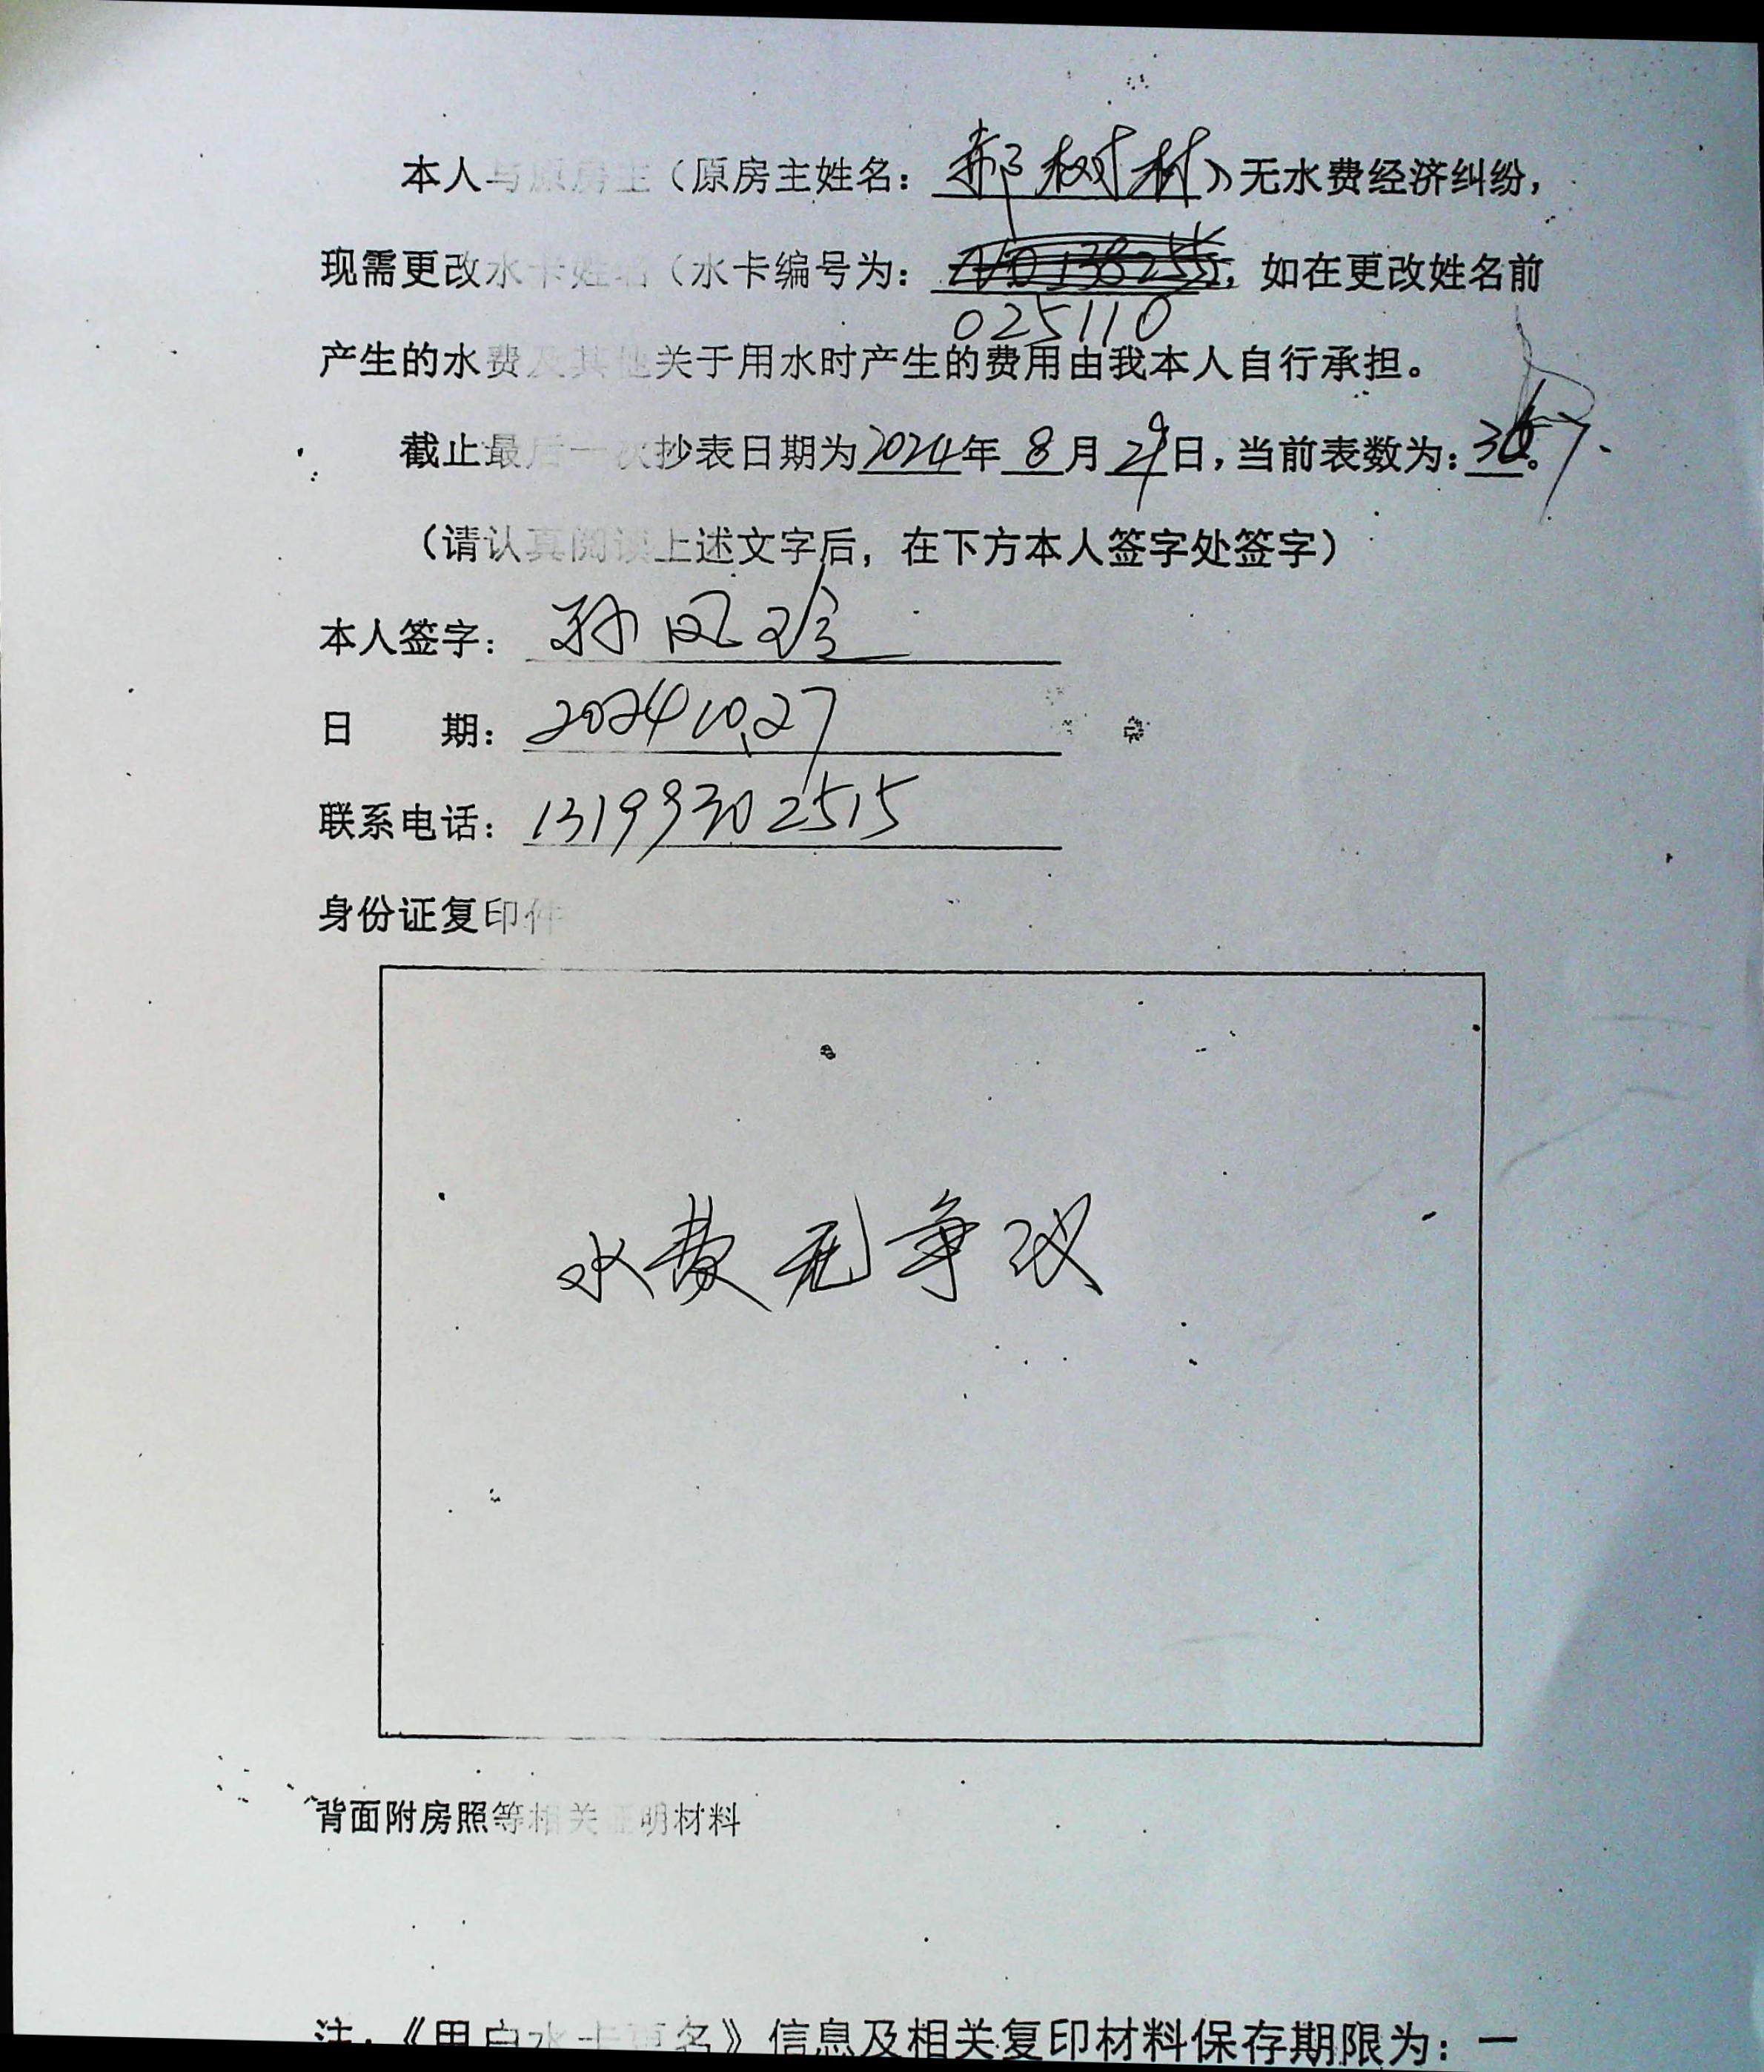 本人与原房主（原房主姓名：郝树林）无水费经济纠纷，
现需更改水卡姓名（水卡编号为：，如在更改姓名前
025110
产生的水费及其他关于用水时产生的费用由我本人自行承担。
截止最后一次抄表日期为2024年8月29日，当前表数为：367。
（请认真阅读上述文字后，在下方本人签字处签字）
本人签字：孙凤珍
日期：2024 10.27
联系电话：13199302515
身份证复印件
水费无争议
背面附房照等相关证明材料
注：《用户水卡更名》信息及相关复印材料保存期限为：一